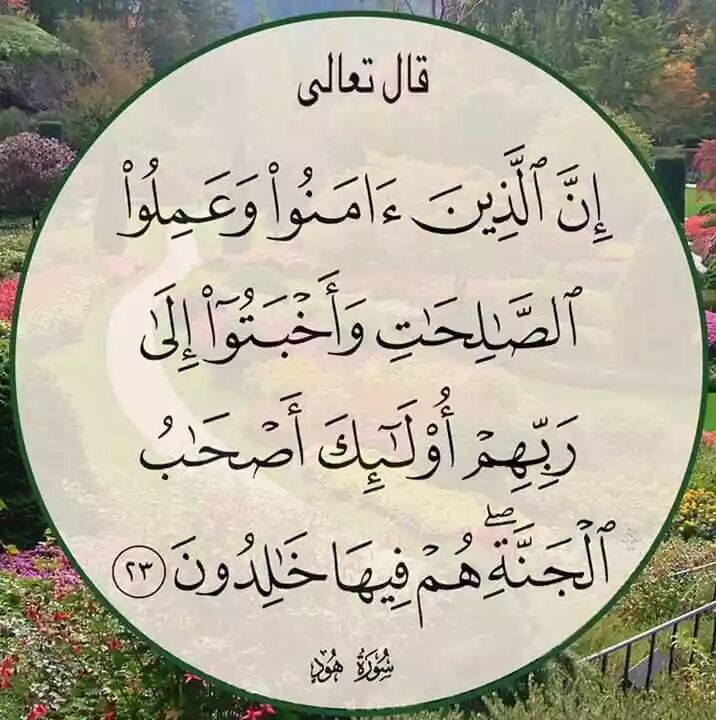 قال تعالى
إِنَّ ٱلَّذِينَ ءَامَنُوا۟ وَعَمِلُوا۟
ٱلصَّـٰلِحَـٰتِ وَأَخْبَتُوٓا۟ إِلَىٰ
رَبِّهِمْ أُو۟لَـٰٓئِكَ أَصْحَـٰبُ
ٱلْجَنَّةِ ۖ هُمْ فِيهَا خَـٰلِدُونَ ٢٣
سُورَةُ هُودٍ